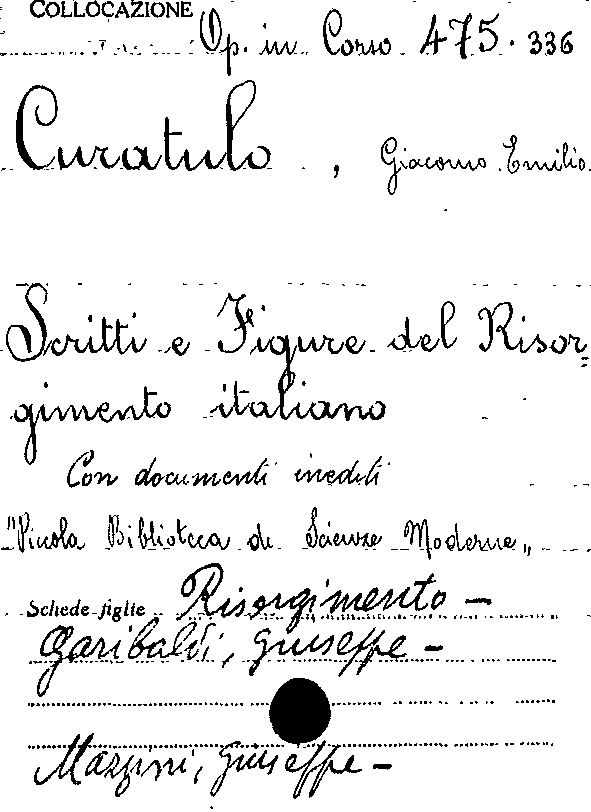 COLLOCAZIONE Op. in Corso 475.336
Curatulo, Giacomo Emilio
Scritti e Figure del Risor=
gimento italiano
Con documenti inediti
"Piccola Biblioteca di Scienze Moderne„
Schede figlie Risorgimento –
Garibaldi, Giuseppe –
Mazzini, Giuseppe –